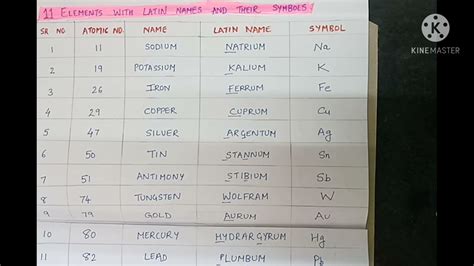 11 ELEMENTS WITH LATIN NAMES AND THEIR SYMBOLS
KINEMASTER
SR NO ATOMIC NO. NAME LATIN NAME SYMBOL
1 11 SODIUM NATRIUM Na
2 19 POTASSIUM KALIUM K
3 26 IRON FERRUM Fe
4 29 COPPER CUPRUM Cu
5 47 SILVER ARGENTUM Ag
6 50 TIN STANNUM Sn
7 51 ANTIMONY STIBIUM Sb
8 74 TUNGSTEN WOLFRAM W
9 79 GOLD AURUM Au
10 80 MERCURY HYDRARGYRUM Hg
11 82 LEAD PLUMBUM Pb